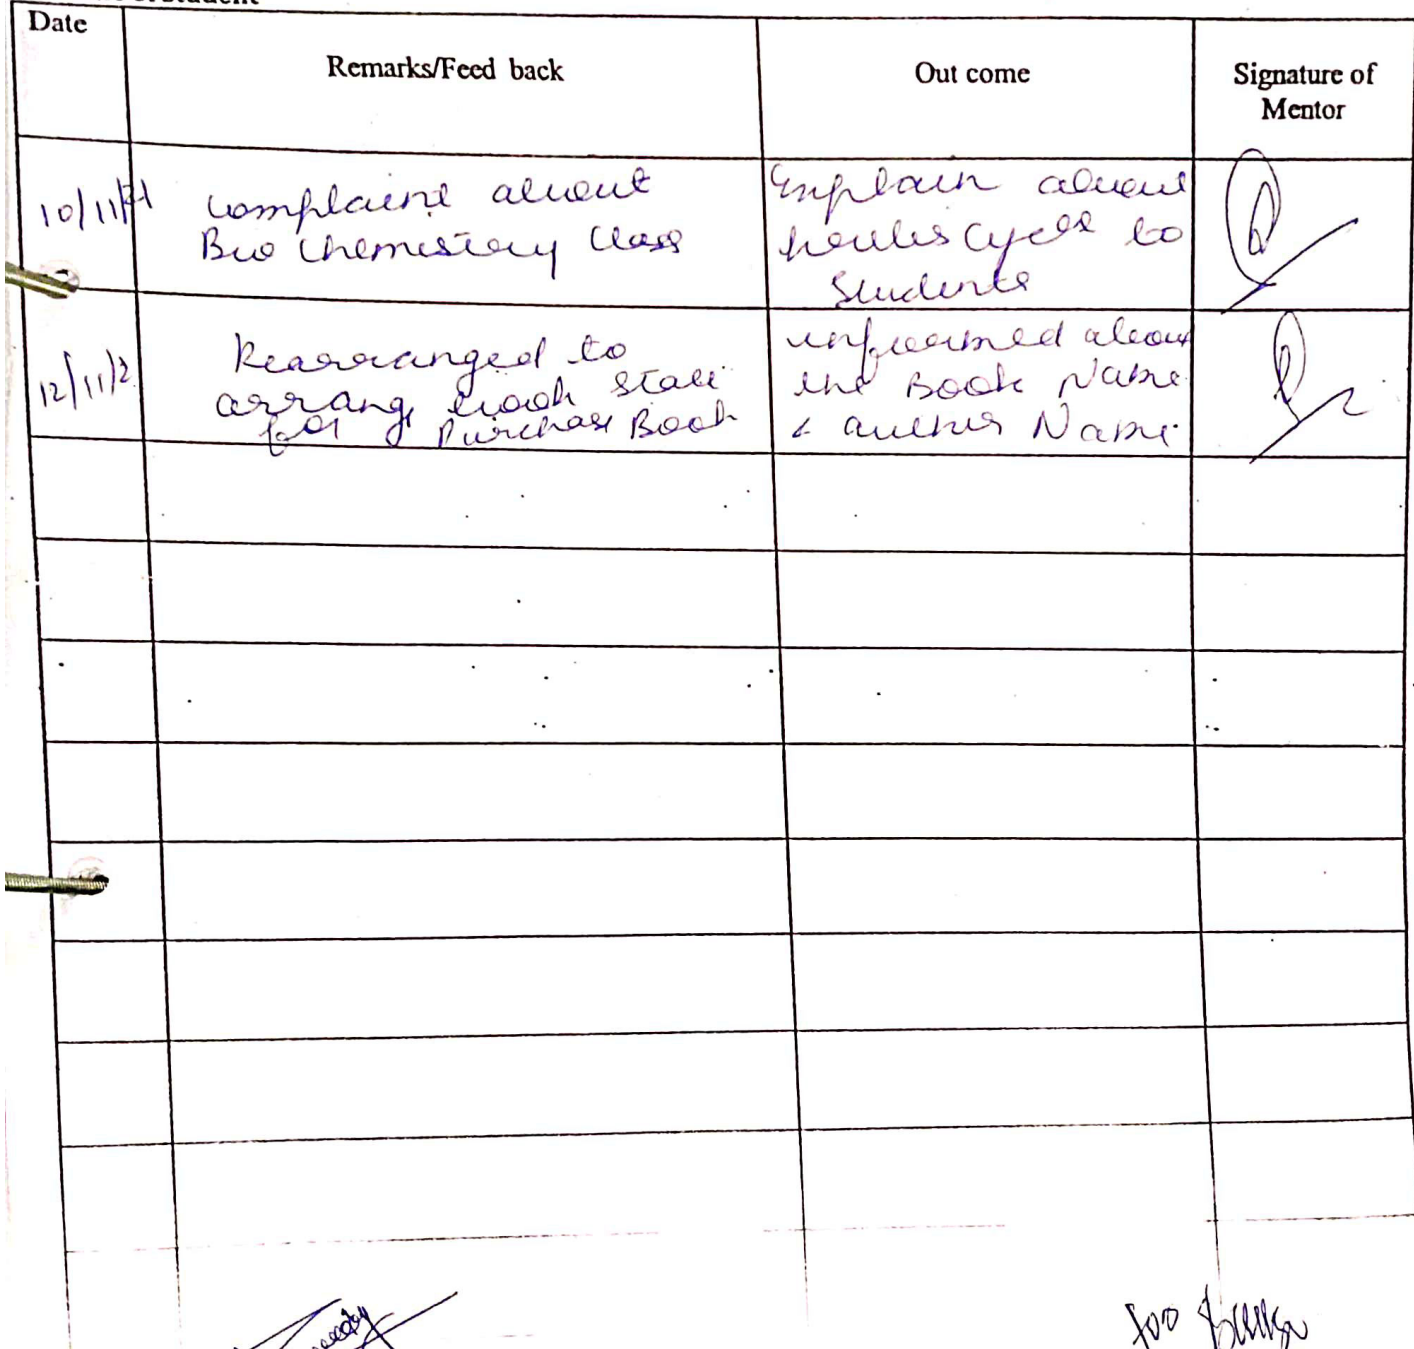 student
Date
Remarks/Feed back
Out come
Signature of
Mentor
10/11/21
complaint about
Bio Chemistery Class
Explain about
Cycle to
Students
12/11/2
Rearranged to
arrang book stall
for Purchase Book
informed about
the Book Name
& author Name